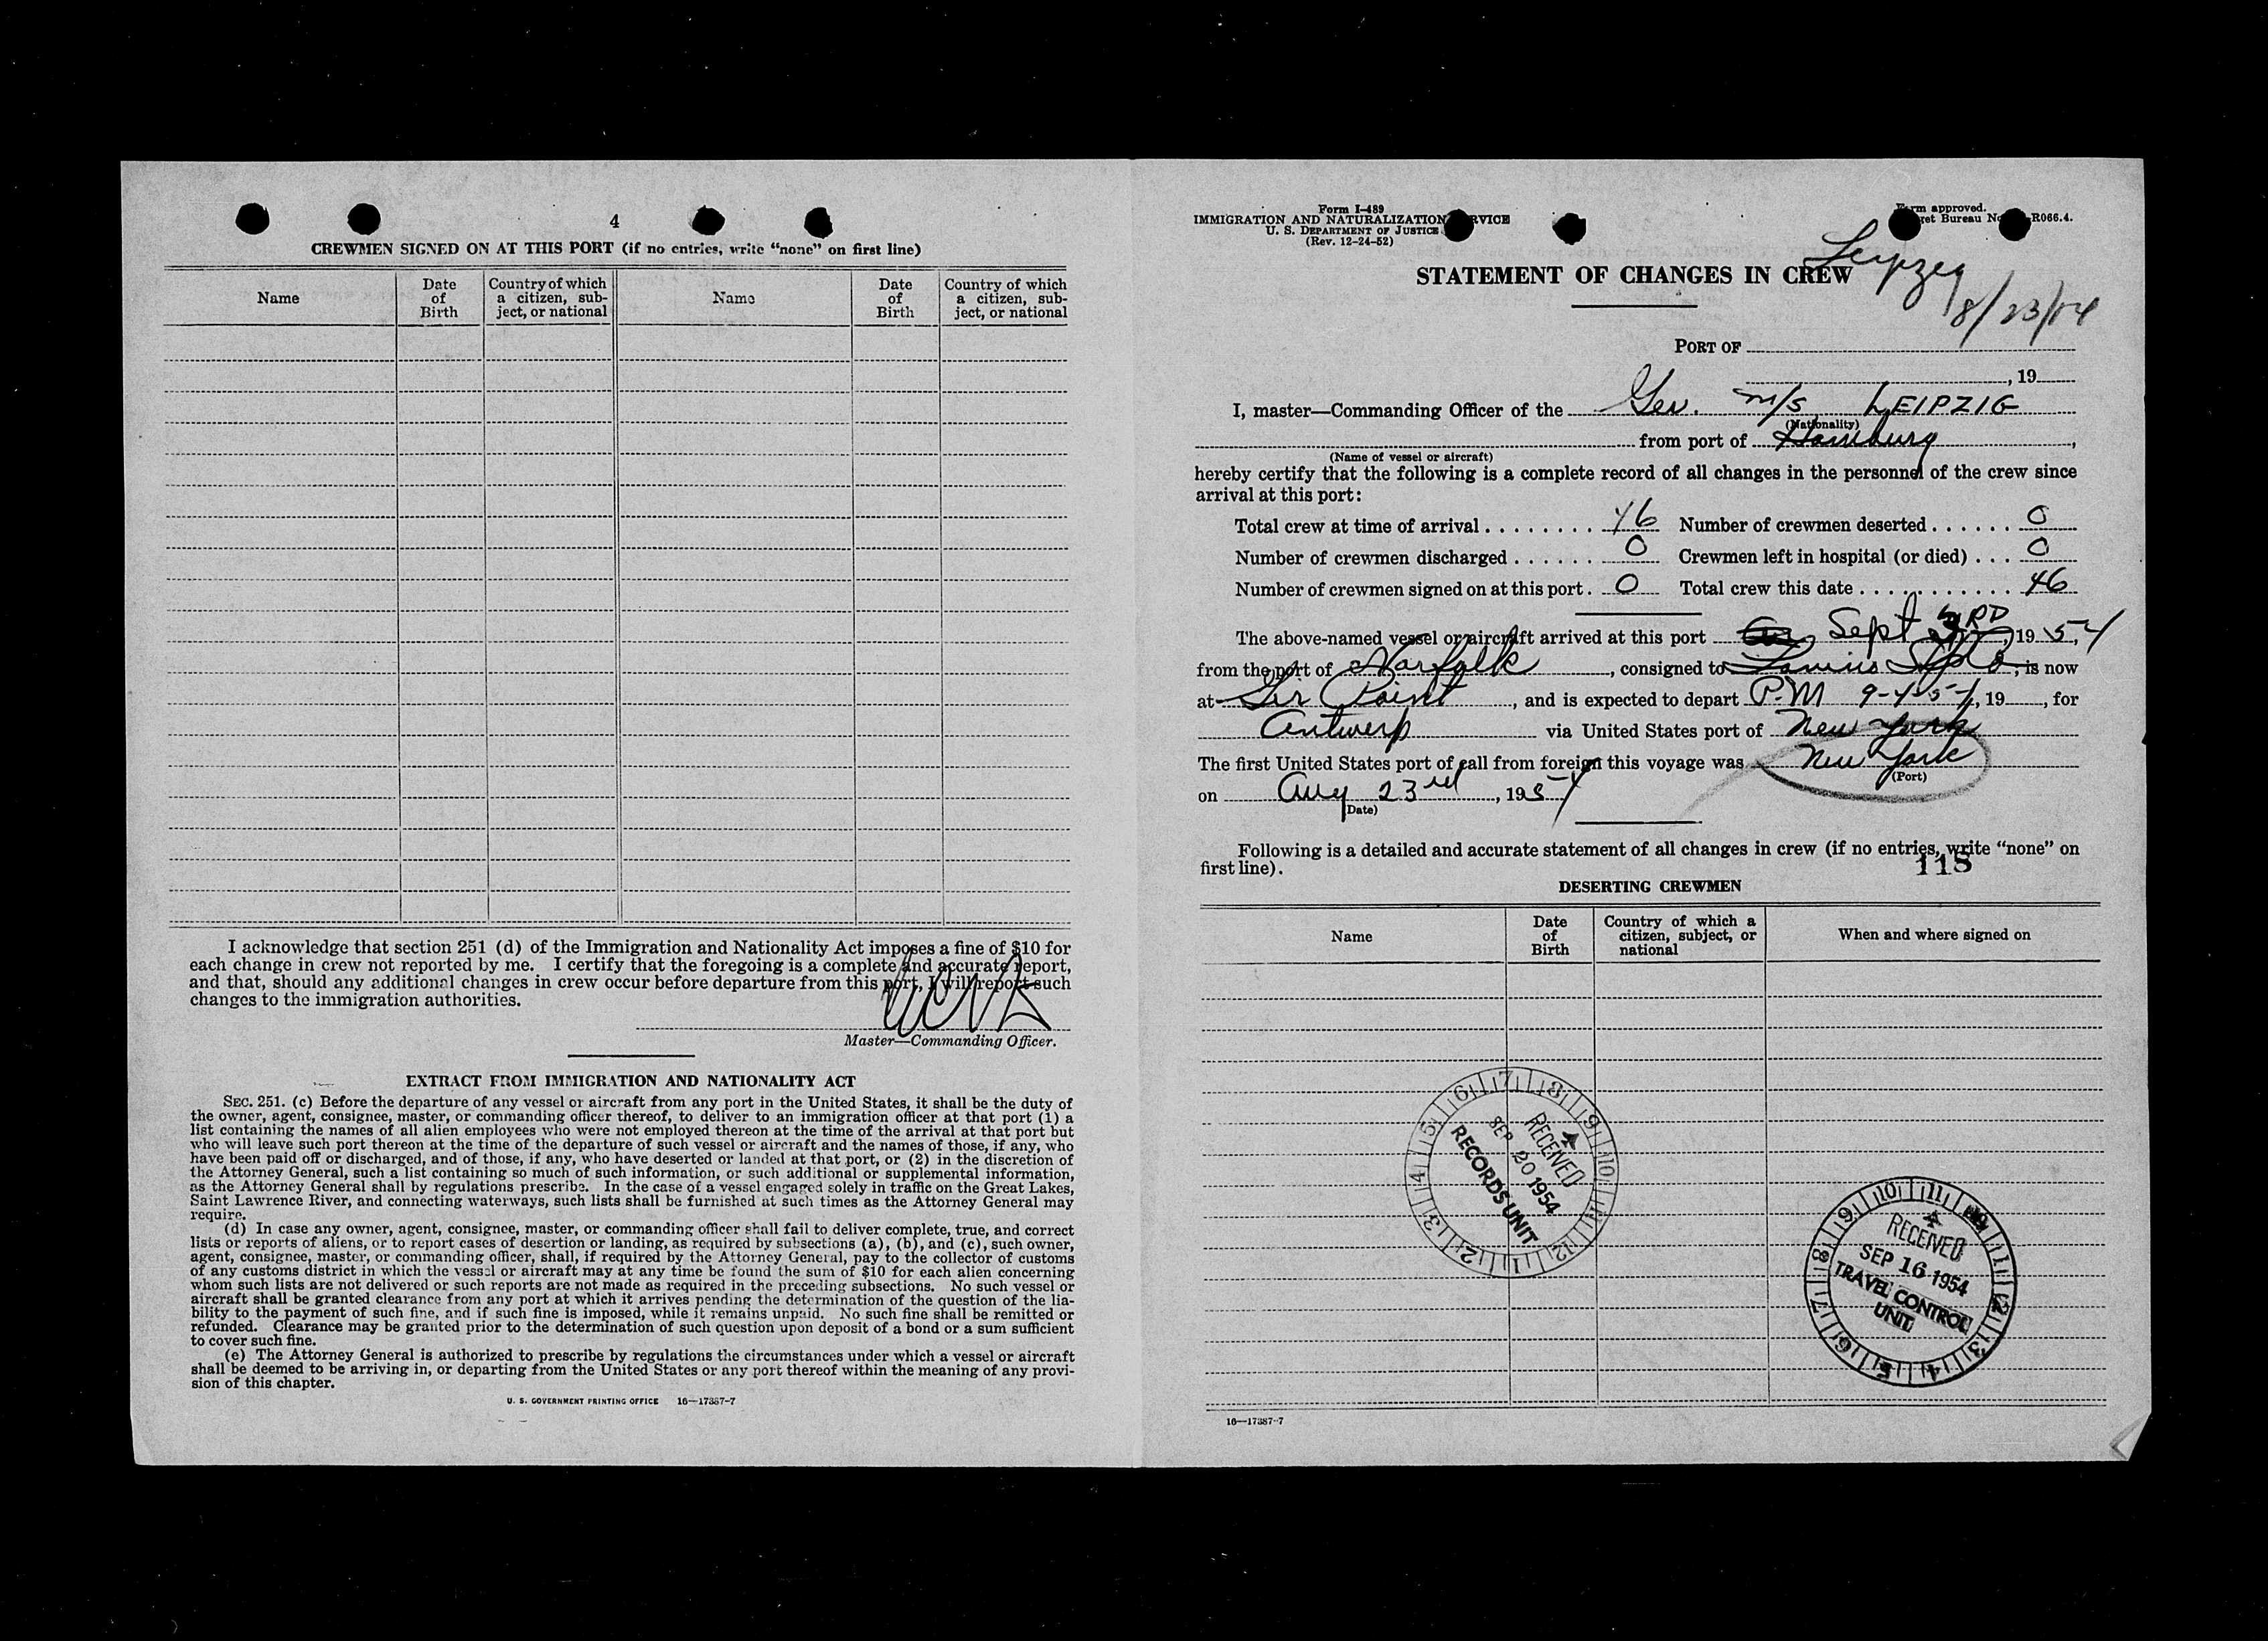 4
CREWMEN SIGNED ON AT THIS PORT (if no entries, write "none" on first line)
Name
Date of Birth
Country of which a citizen, subject, or national
Name
Date of Birth
Country of which a citizen, subject, or national
I acknowledge that section 251 (d) of the Immigration and Nationality Act imposes a fine of $10 for
each change in crew not reported by me. I certify that the foregoing is a complete and accurate report,
and that, should any additional changes in crew occur before departure from this port, I will report such
changes to the immigration authorities.
Master—Commanding Officer.
EXTRACT FROM IMMIGRATION AND NATIONALITY ACT
SEC. 251. (c) Before the departure of any vessel or aircraft from any port in the United States, it shall be the duty of
the owner, agent, consignee, master, or commanding officer thereof, to deliver to an immigration officer at that port (1) a
list containing the names of all alien employees who were not employed thereon at the time of the arrival at that port but
who will leave such port thereon at the time of the departure of such vessel or aircraft and the names of those, if any, who
have been paid off or discharged, and of those, if any, who have deserted or landed at that port, or (2) in the discretion of
the Attorney General, such a list containing so much of such information, or such additional or supplemental information,
as the Attorney General shall by regulations prescribe. In the case of a vessel engaged solely in traffic on the Great Lakes,
Saint Lawrence River, and connecting waterways, such lists shall be furnished at such times as the Attorney General may
require.
(d) In case any owner, agent, consignee, master, or commanding officer shall fail to deliver complete, true, and correct
lists or reports of aliens, or to report cases of desertion or landing, as required by subsections (a), (b), and (c), such owner,
agent, consignee, master, or commanding officer, shall, if required by the Attorney General, pay to the collector of customs
of any customs district in which the vessel or aircraft may at any time be found the sum of $10 for each alien concerning
whom such lists are not delivered or such reports are not made as required in the preceding subsections. No such vessel or
aircraft shall be granted clearance from any port at which it arrives pending the determination of the question of the lia-
bility to the payment of such fine, and if such fine is imposed, while it remains unpaid. No such fine shall be remitted or
refunded. Clearance may be granted prior to the determination of such question upon deposit of a bond or a sum sufficient
to cover such fine.
(e) The Attorney General is authorized to prescribe by regulations the circumstances under which a vessel or aircraft
shall be deemed to be arriving in, or departing from the United States or any port thereof within the meaning of any provi-
sion of this chapter.
U. S. GOVERNMENT PRINTING OFFICE 16—17387-7
Form I-489
IMMIGRATION AND NATURALIZATION RVICE
U. S. DEPARTMENT OF JUSTICE
(Rev. 12-24-52)
rm approved.
et Bureau No R066.4.
Leipzig
8/23/54
STATEMENT OF CHANGES IN CREW
PORT OF
, 19
I, master—Commanding Officer of the Ger. M/S LEIPZIG
(Nationality)
from port of Hamburg,
(Name of vessel or aircraft)
hereby certify that the following is a complete record of all changes in the personnel of the crew since
arrival at this port:
Total crew at time of arrival 46 Number of crewmen deserted 0
Number of crewmen discharged 0 Crewmen left in hospital (or died) 0
Number of crewmen signed on at this port. 0 Total crew this date 46
The above-named vessel or aircraft arrived at this port Sept 3RD, 1954,
from the port of Norfolk, consigned to, is now
at Point, and is expected to depart P.M 9-4-54, 19, for
Antwerp via United States port of New York
The first United States port of call from foreign this voyage was New York
(Port)
on Aug 23rd, 1954
(Date)
Following is a detailed and accurate statement of all changes in crew (if no entries, write "none" on
first line).
118
DESERTING CREWMEN
Name
Date of Birth
Country of which a citizen, subject, or national
When and where signed on
6 7 8 9 10 11 12 1 2 3 4 5
RECEIVED
SEP 20 1954
RECORDS UNIT
10 11 12 1 2 3 4 5 6 7 8 9
RECEIVED
SEP 16 1954
TRAVEL CONTROL
UNIT
16—17387-7